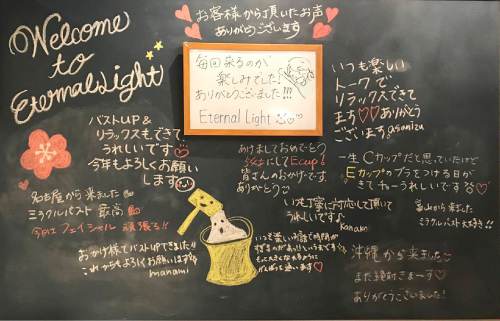 Welcome
to
Eternal Light
お客様から頂いたお声
ありがとうございます
毎回来るのが
楽しみでした!
ありがとうございました!!!
Eternal Light
いつも楽しい
トークで
リラックスできて
ます♡♡ありがとう
ございます
バストUP&
リラックスもできて
うれしいです♡
今年もよろしくお願い
します
あけましておめでとう
にしてEcup!
皆さんのおかげです
ありがとう♡
一生Cカップだと思っていたけど
Eカップのブラをつける日が
きてキーうれしいです
名古屋から来ました
ミラクルバスト 最高
今日はフェイシャル 頑張る!!
いつも丁寧に対応して頂いて
うれしいです♪
Kanako
富山から来ました
ミラクルバスト大好き!!
おかげ様でバストUPできました!!
これからもよろしくお願いします
manami
いつも楽しいお話で時間が
すぎるのがあっ!という間です♡
もっと大きくなれるように
がんばって通います♡
沖縄から来ました
また絶対きまーす♡
ありがとうございました!